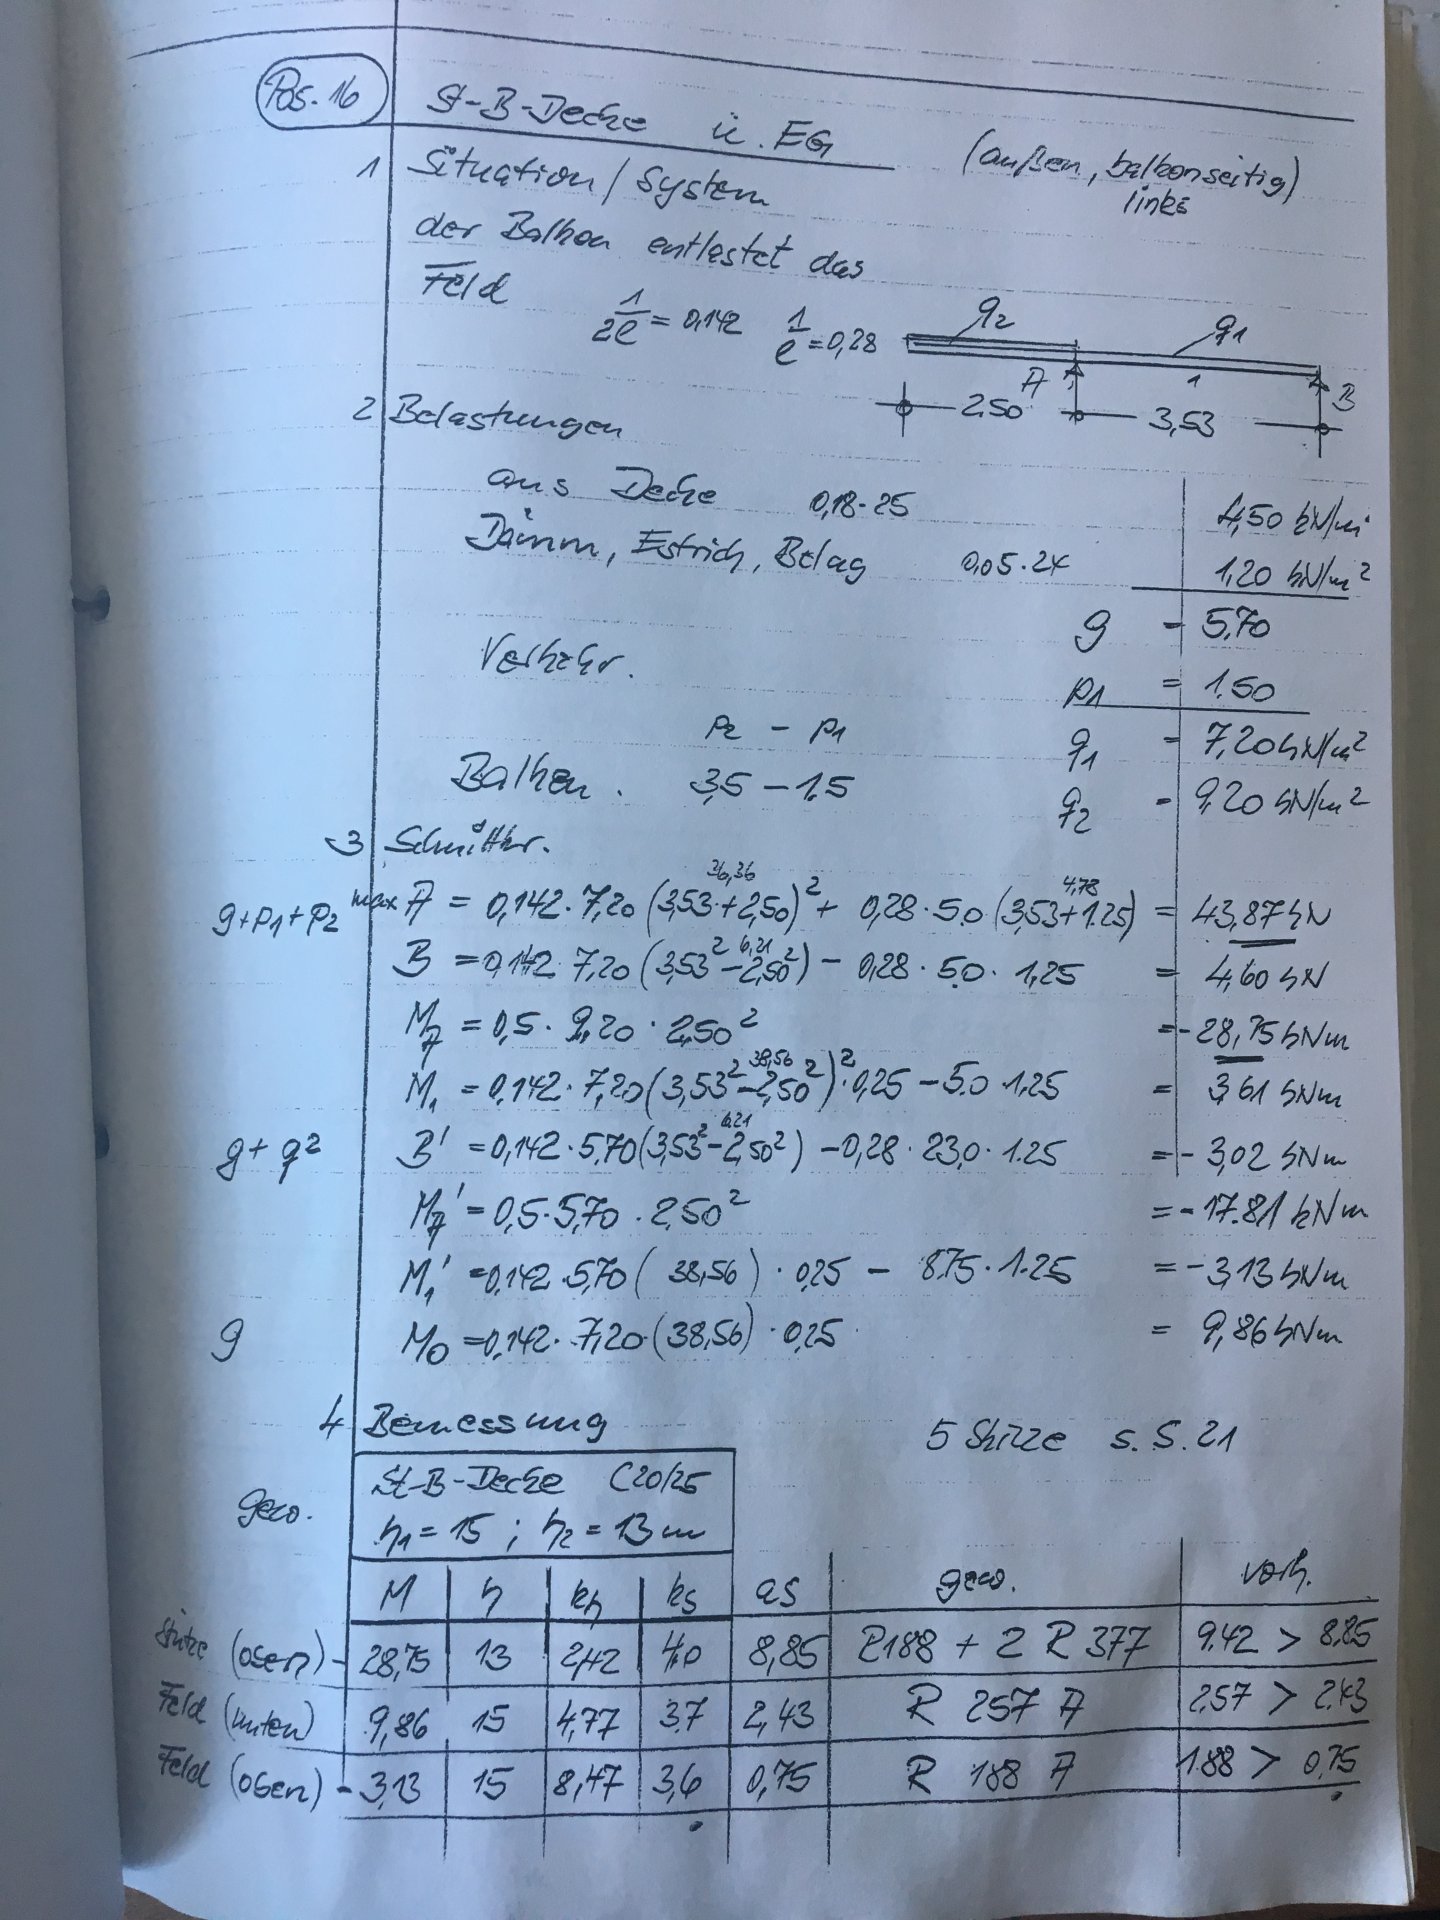 Pos. 16 St-B-Decke ü. EG (außen, balkonseitig)
links
1 Situation / System
der Balkon entlastet das
Feld 1/2l = 0,142 1/l = 0,28
q2 q1
A 1 B
2,50 3,53
2 Belastungen
aus Decke 0,18·25 4,50 kN/m²
Dämm, Estrich, Belag 0,05·24 1,20 kN/m²
g = 5,70
Verkehr. p1 = 1.50
p2 - p1 q1 = 7,20 kN/m²
Balkon. 3,5 - 1.5 q2 = 9,20 kN/m²
3 Schnittkr.
36,36 4,78
g+p1+p2 max A = 0,142·7,20 (3,53+2,50)² + 0,28·5.0 (3,53+1.25) = 43,87 kN
6,21
B = 0,142·7,20 (3,53²-2,50²) - 0,28·5.0·1,25 = 4,60 kN
MA = 0,5·9,20·2,50² = -28,75 kNm
38,56
M1 = 0,142·7,20 (3,53²-2,50²)²·0,25 - 5.0·1.25 = 3,61 kNm
6,21
g+q² B' = 0,142·5,70 (3,53²-2,50²) - 0,28·23,0·1.25 = -3,02 kNm
MA' = 0,5·5,70·2,50² = -17.81 kNm
M1' = 0,142·5,70 (38,56)·0,25 - 8.75·1.25 = -3,13 kNm
g M0 = 0,142·7,20 (38,56)·0,25 = 9,86 kNm
4 Bemessung 5 Skizze s. S. 21
St-B-Decke C20/25
gew. h1 = 15 ; h2 = 13 cm
M h kh ks as gew. vorh.
Stütze (oben) -28,75 13 2,42 4.0 8,85 R188 + 2 R 377 9.42 > 8,85
Feld (unten) 9,86 15 4,77 3.7 2,43 R 257 A 2,57 > 2.43
Feld (oben) -3,13 15 8,47 3,6 0,75 R 188 A 1.88 > 0,75